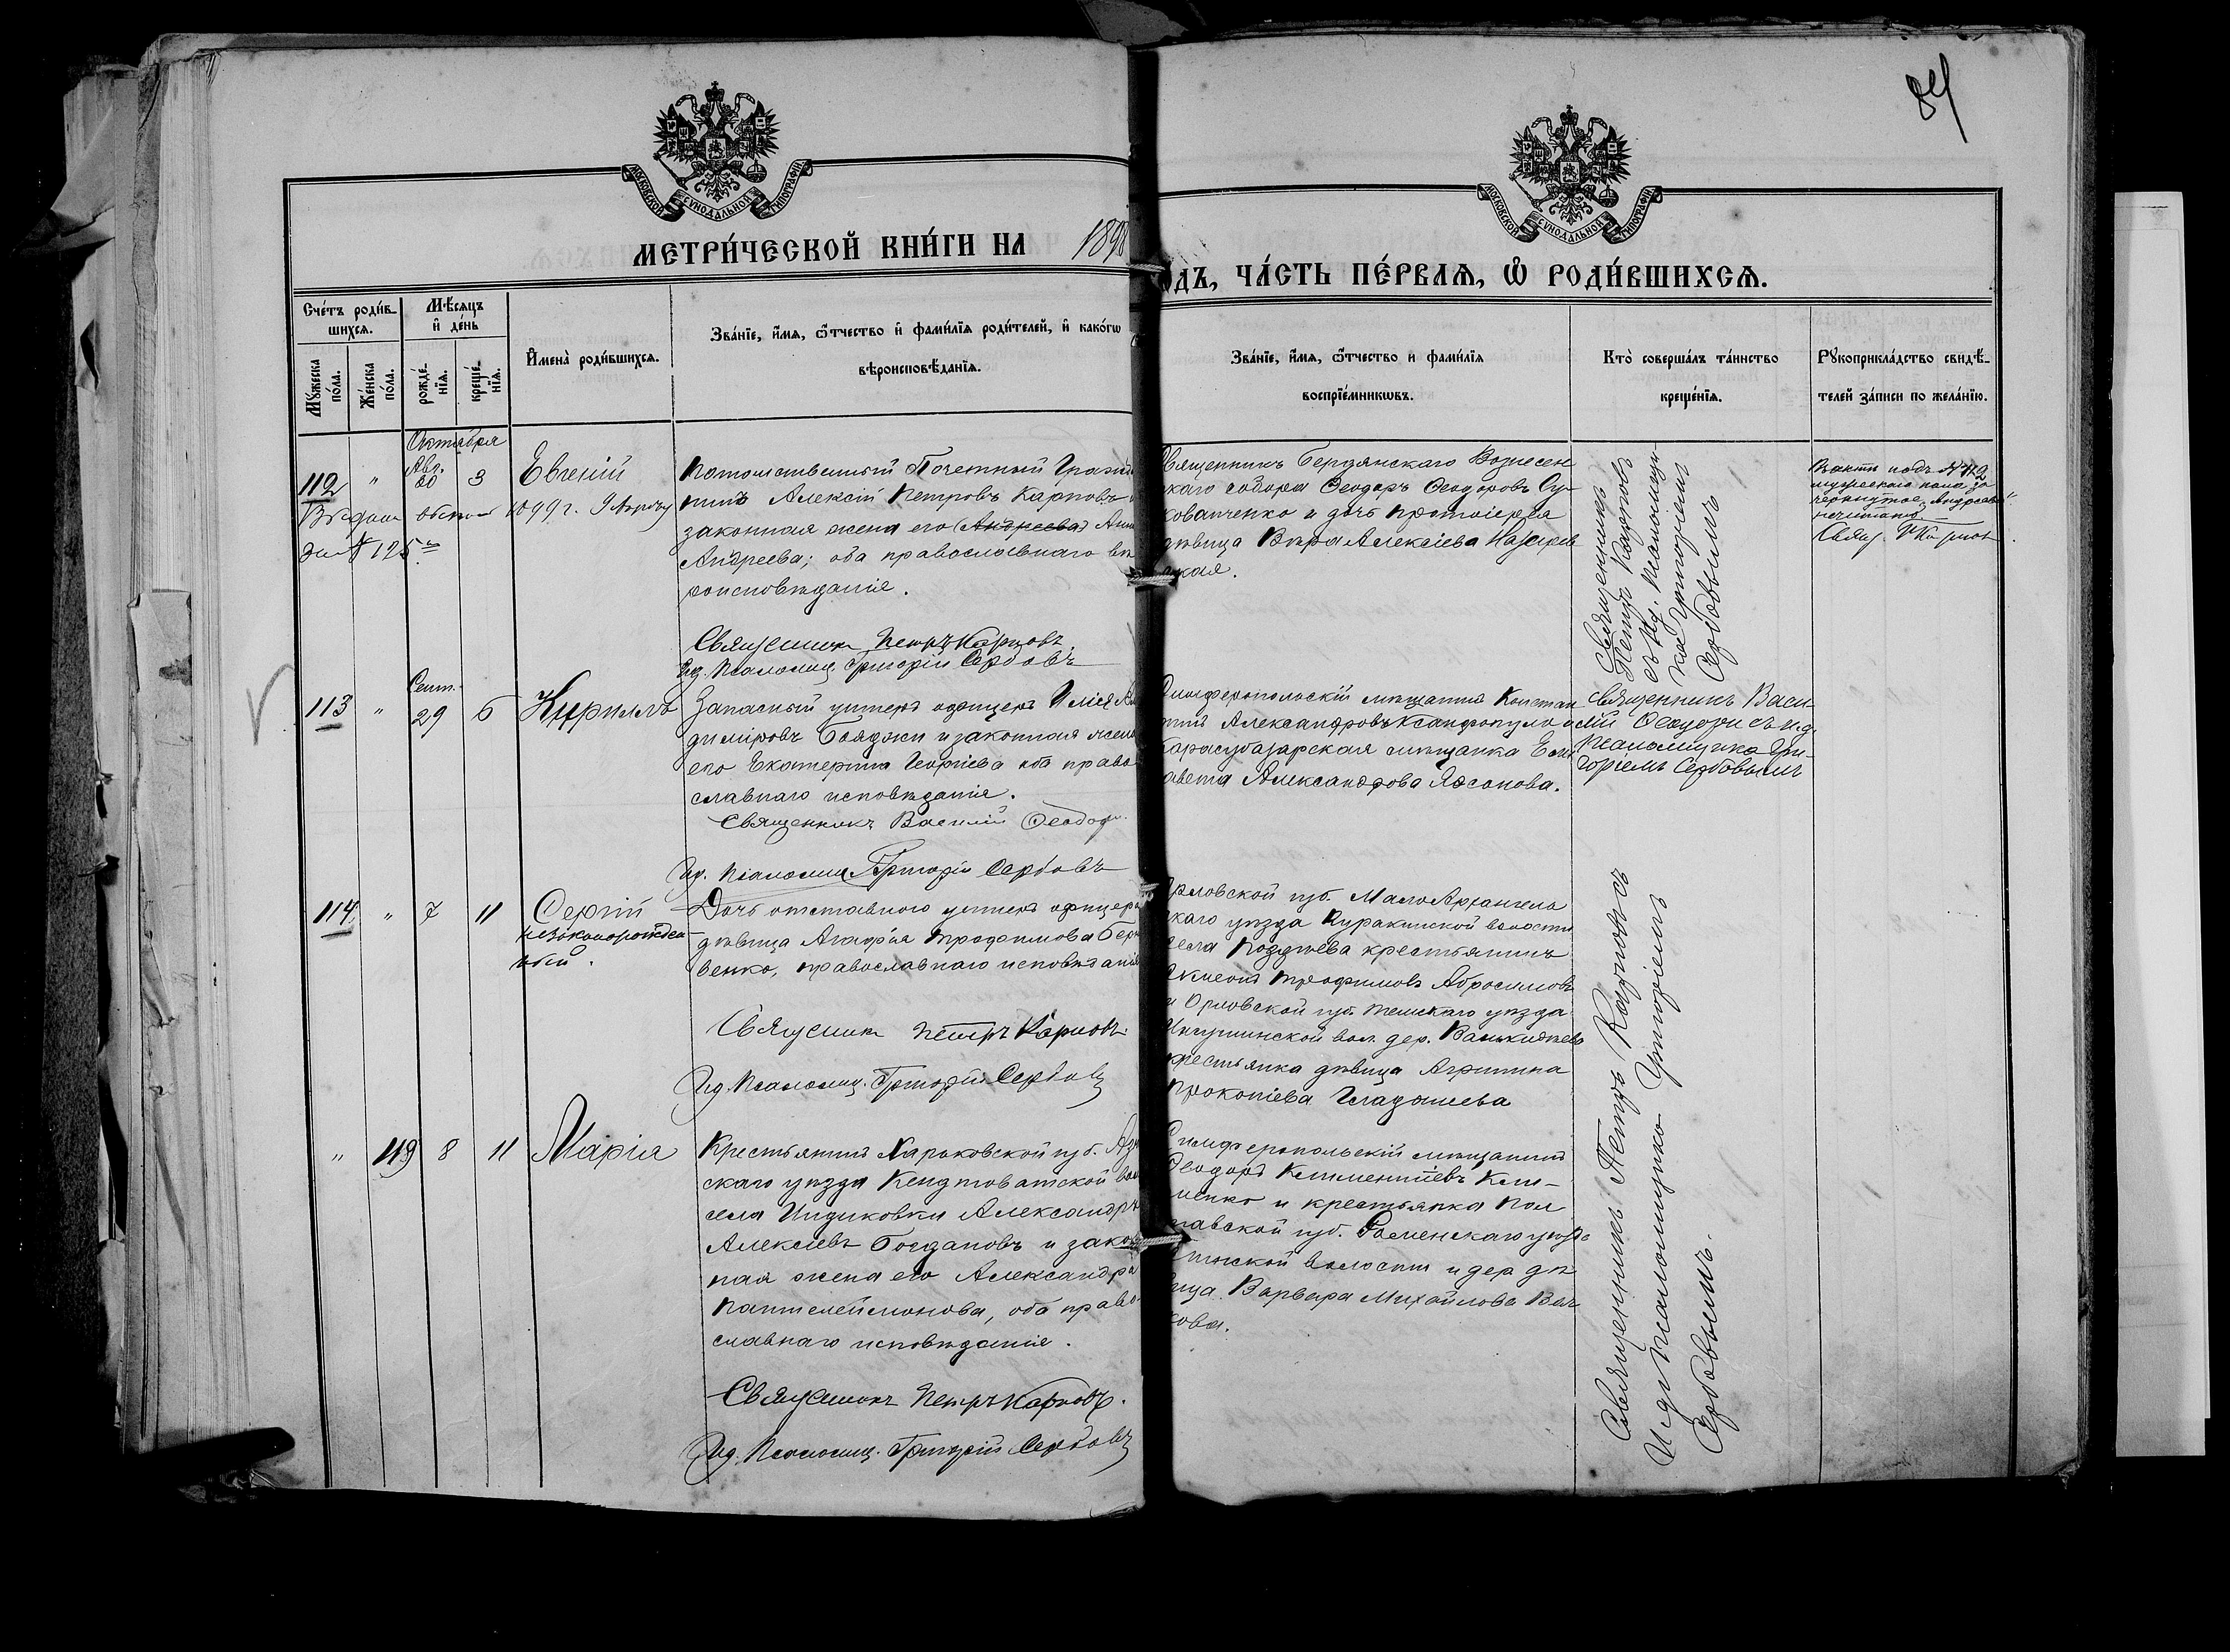 84
МОСКОВСКОЙ СѴНОДАЛЬНОЙ ТИПОГРАФІИ
МОСКОВСКОЙ СѴНОДАЛЬНОЙ ТИПОГРАФІИ
МЕТРИ́ЧЕСКОЙ КНИ́ГИ НА 1898
ОДЪ, ЧА́СТЬ ПЕ́РВАѦ, Ѽ РОДИ́ВШИХСѦ.
Сче́тъ роди́в-
шихсѧ.
Мꙋ́жеска по́ла.
Же́нска по́ла.
Мѣ́сѧцъ
и҆ де́нь
рожде́-
нїѧ.
креще́-
нїѧ.
И҆мена̀ роди́вшихсѧ.
Зва́нїе, и҆́мѧ, ѻ҆́тчество и҆ фами́лїѧ роди́телей, и҆ како́гѡ
вѣроисповѣ́данїѧ.
Зва́нїе, и҆́мѧ, ѻ҆́тчество и҆ фами́лїѧ
воспрїе́мникѡвъ.
Кто̀ соверша́лъ та́инство
креще́нїѧ.
Рꙋкоприкла́дство свидѣ́-
телей за́писи по жела́нїю.
Октября
112 " Авг. 20 3 Евгеній
1899 г.
№ 125
Потомственный Почетный Гражда
нинъ Алексій Петровъ Карповъ
законная жена его (Андреева) Анна
Андреева; оба православнаго вѣ
роисповѣданія.
Священникъ Петръ Карповъ
Ид. Псаломщ. Григорій Сербовъ
Священникъ Бердянскаго Вознесен
скаго собора Ѳеодоръ Ѳеодоровъ Су-
кованченко и дочь протоіерея
дѣвица Вѣра Алексіева Назарев
ская.
Священникъ
Петръ Карповъ
съ Ид. Псаломщи
комъ Григоріемъ
Сербовымъ
Въ актѣ подъ № 112
мужескаго пола за
черкнутое „Андреева"
не читать
Свящ. П Карповъ
113 " Сент. 29 6 Кириллъ
Запасный унтеръ офицеръ Илія
диміровъ Бояджи и законная жена
его Екатерина Георгіева оба право
славнаго исповѣданія.
Священникъ Василій Ѳеодор
Ид. Псаломщ Григорій Сербовъ
Симферопольскій мѣщанинъ Констан
тинъ Александровъ Ксанфопуло и
Карасубазарская мѣщанка Ели
авета Александрова Яксонова.
Священникъ Васи-
лій съ и.д.
псаломщика Гри-
горіемъ Сербовымъ
114 " 7 11 Сергій
незаконорожден
ный.
Дочь отставного унтеръ офицера
дѣвица Агафія Трофимова Бер
венко, православнаго исповѣданія
Священникъ Петръ Карповъ
Ид. Псаломщ. Григорій Сербовъ
Орловской губ. Мало Архангель
скаго уѣзда Куракинской волости
села Позднѣева крестьянинъ
Трофимовъ Абросимовъ
и Орловской губ. уѣзда
вол. дер.
крестьянка дѣвица Агрипина
Прокопіева
" 119 8 11 Марія
Крестьянинъ Харьковской губ.
скаго уѣзда вол
села Александръ
Алексіевъ Богдановъ и закон
ная жена его Александра
Пантелеймонова, оба право
славнаго исповѣданія.
Священникъ Петръ Карповъ.
Ид. Псаломщ. Григорій Сербовъ
Симферопольскій мѣщанинъ
Ѳеодоръ Климентіевъ Кли-
менко и крестьянка Пол
тавской губ. Роменскаго уѣзда
волости и дер дѣ
вица Варвара Михайлова Вол
кова.
Священникъ Петръ Карповъ съ
И.д. Псаломщика Григоріемъ
Сербовымъ.